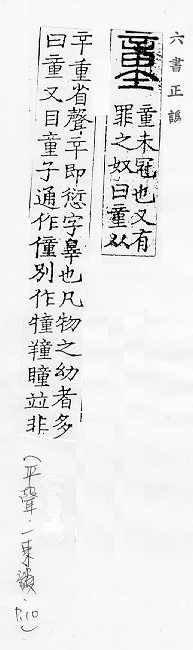 六書正譌
童 童未冠也又有
罪之奴曰童从
䇂重省聲䇂即愆字辠也凡物之幼者多
曰童又目童子通作僮別作犝䍶瞳竝非
(平聲.一東韻.P.10)